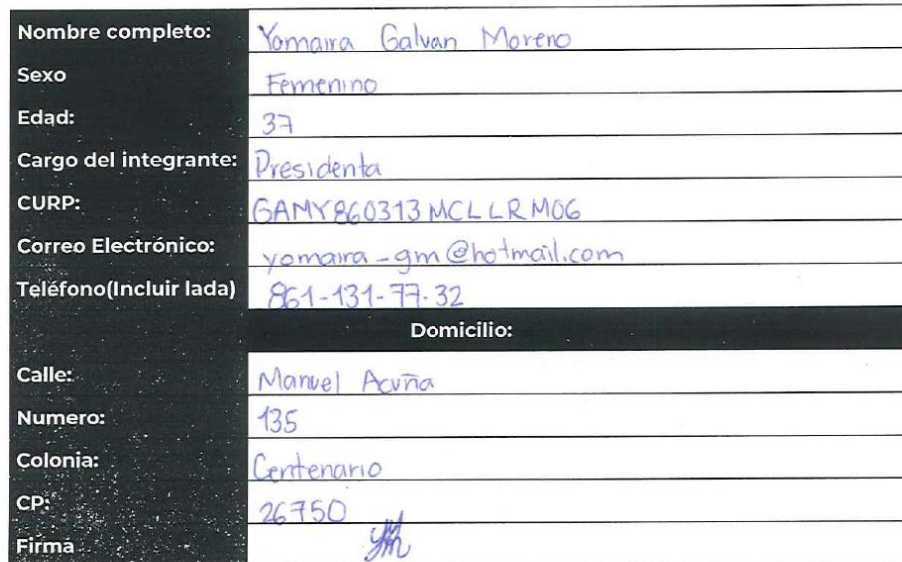 Nombre completo: Yomaira Galvan Moreno
Sexo Femenino
Edad: 37
Cargo del integrante: Presidenta
CURP: GAMY860313MCLLRM06
Correo Electrónico: yomaira_gm@hotmail.com
Teléfono(Incluir lada) 861-131-77-32
Domicilio:
Calle: Manuel Acuña
Numero: 135
Colonia: Centenario
CP: 26750
Firma